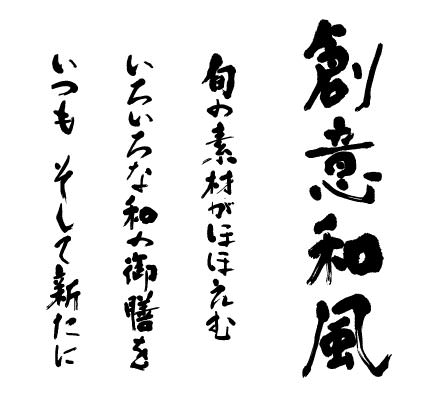 創意和風
旬の素材がほほえむ
いろいろな和の御膳を
いつも そして新たに